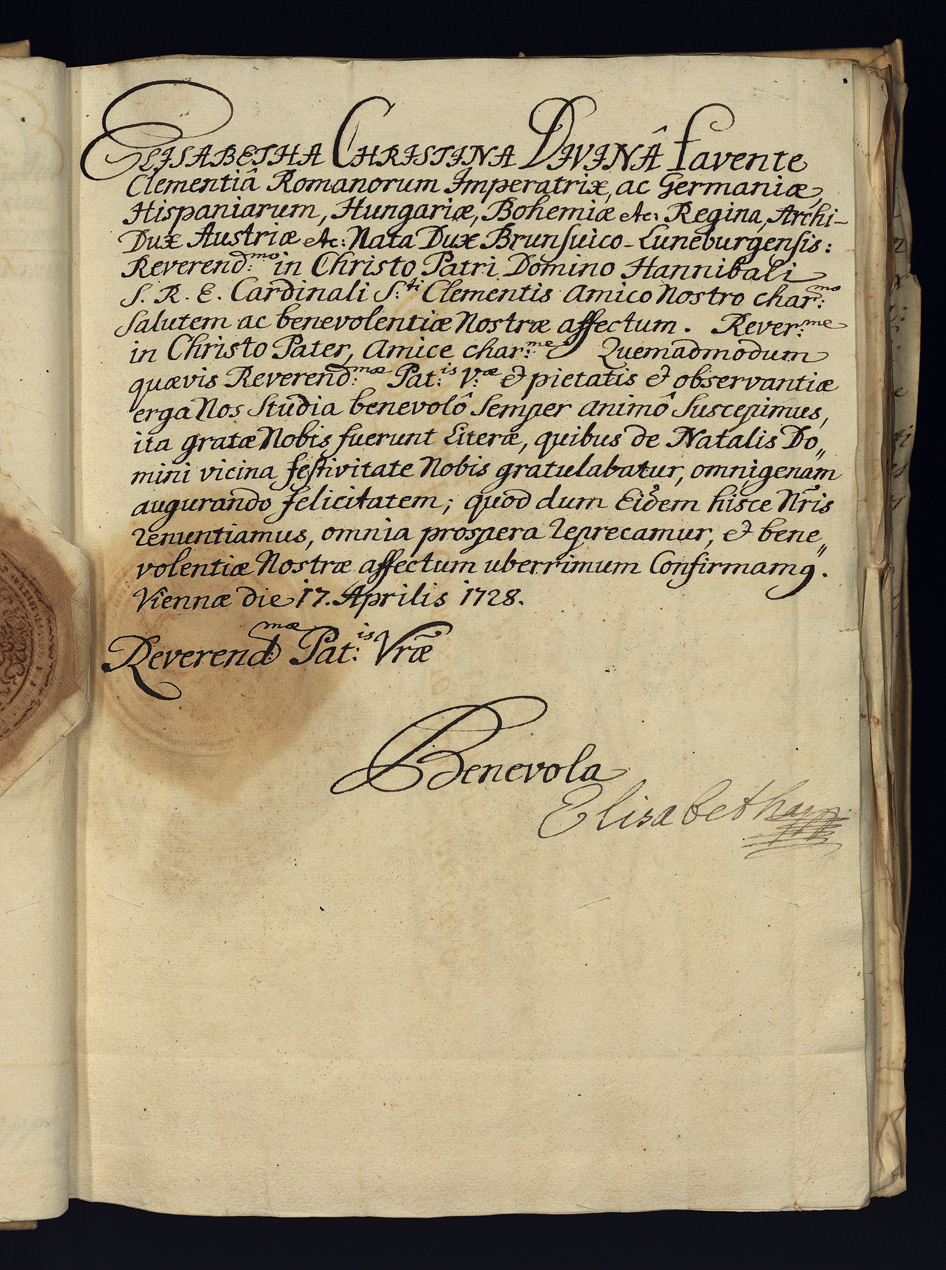 ELISABETHA CHRISTINA DIVINÂ favente
Clementiâ Romanorum Imperatrix, ac Germaniæ,
Hispaniarum, Hungariæ, Bohemiæ &c: Regina, Archi-
Dux Austriæ &c: Nata Dux Brunsuico-Luneburgensis:
Reverend:mo in Christo Patri Domino Hannibali
S. R. E. Cardinali S:ti Clementis Amico Nostro char:mo
Salutem ac benevolentiæ Nostræ affectum. Rever:me
in Christo Pater, Amice char:me Quemadmodum
quævis Reverend:mæ Pat:is V:æ & pietatis & observantiæ
erga Nos Studia benevolô Semper animô Suscepimus,
ita gratæ Nobis fuerunt Literæ, quibus de Natalis Do„
mini vicina festivitate Nobis gratulabatur, omnigenam
augurando felicitatem; quod dum Eidem hisce Nr̃is
renuntiamus, omnia prospera reprecamur, & bene„
volentiæ Nostræ affectum uberrimum Confirmamꝰ.
Viennæ die 17. Aprilis 1728.
Reverend:mæ Pat:is Vræ̃
Benevola
Elisabetha